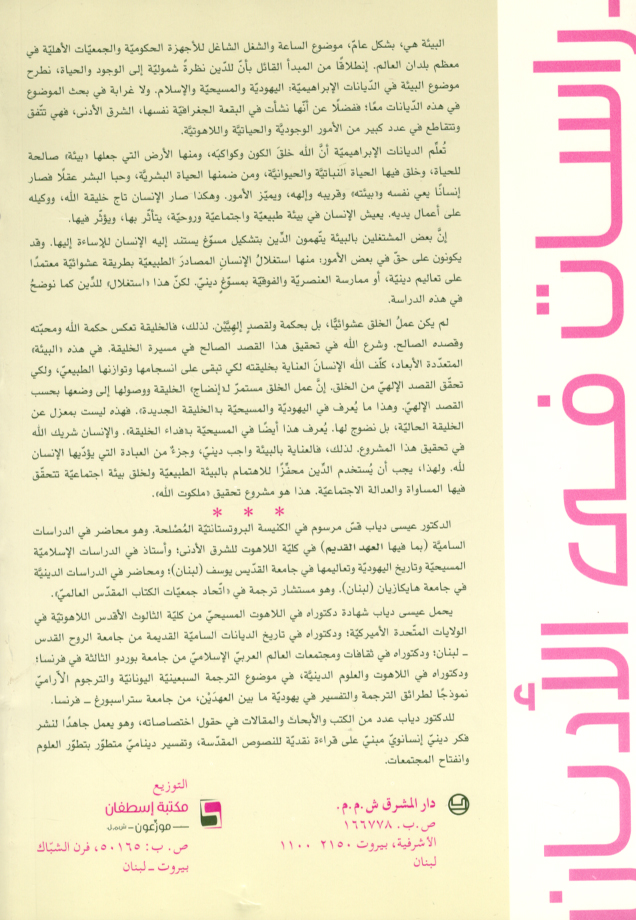 دراسات في الأديان
البيئة هي، بشكل عامّ، موضوع الساعة والشغل الشاغل للأجهزة الحكوميّة والجمعيّات الأهليّة في
معظم بلدان العالم. إنطلاقًا من المبدأ القائل بأنّ للدّين نظرةً شموليّة إلى الوجود والحياة، نطرح
موضوع البيئة في الدّيانات الإبراهيميّة: اليهوديّة والمسيحيّة والإسلام. ولا غرابة في بحث الموضوع
في هذه الدّيانات معًا؛ ففضلًا عن أنّها نشأت في البقعة الجغرافيّة نفسها، الشرق الأدنى، فهي تتّفق
وتتقاطع في عدد كبير من الأمور الوجوديّة والحياتيّة واللاهوتيّة.
تُعلِّم الديانات الإبراهيميّة أنَّ الله خلقَ الكون وكواكبَه، ومنها الأرض التي جعلها «بيئة» صالحة
للحياة، وخلق فيها الحياة النباتيَّة والحيوانيَّة، ومن ضمنها الحياة البشريَّة، وحبا البشر عقلًا فصار
إنسانًا يعي نفسه و«بيئته» وقريبه وإلهه، ويميّز الأمور. وهكذا صار الإنسان تاج خليقة الله، ووكيله
على أعمال يديه. يعيش الإنسان في بيئة طبيعيّة واجتماعيّة وروحيّة، يتأثّر بها، ويؤثّر فيها.
إنَّ بعض المشتغلين بالبيئة يتّهمون الدِّين بتشكيل مسوّغ يستند إليه الإنسان للإساءة إليها. وقد
يكونون على حقّ في بعض الأمور؛ منها استغلالُ الإنسانِ المصادرَ الطبيعيّة بطريقة عشوائيّة معتمدًا
على تعاليم دينيّة، أو ممارسة العنصريّة والفوقيّة بمسوّغٍ دينيّ. لكنّ هذا «استغلال» للدِّين كما نوضحُ
في هذه الدراسة.
لم يكن عملُ الخلق عشوائيًّا، بل بحكمة ولقصدٍ إلهيَّيْن. لذلك، فالخليقة تعكس حكمة الله ومحبّته
وقصده الصالح. وشرع الله في تحقيق هذا القصد الصالح في مسيرة الخليقة. في هذه «البيئة»
المتعدّدة الأبعاد، كلّف الله الإنسانَ العناية بخليقته لكي تبقى على انسجامها وتوازنها الطبيعيّ، ولكي
تحقّق القصد الإلهيّ من الخلق. إنَّ عمل الخلق مستمرّ لـ«إنضاج» الخليقة ووصولها إلى وضعها بحسب
القصد الإلهيّ. وهذا ما يُعرف في اليهوديّة والمسيحيّة بـ«الخليقة الجديدة». فهذه ليست بمعزل عن
الخليقة الحاليّة، بل نضوج لها. يُعرف هذا أيضًا في المسيحيّة بـ«فداء الخليقة». والإنسان شريك الله
في تحقيق هذا المشروع. لذلك، فالعناية بالبيئة واجب دينيّ، وجزءٌ من العبادة التي يؤدّيها الإنسان
لله. ولهذا، يجب أن يُستخدم الدِّين محفّزًا للاهتمام بالبيئة الطبيعيّة ولخلق بيئة اجتماعيّة تتحقّق
فيها المساواة والعدالة الاجتماعيّة. هذا هو مشروع تحقيق «ملكوت الله».
* * *
الدكتور عيسى دياب قسّ مرسوم في الكنيسة البروتستانتيّة المُصْلحة. وهو محاضر في الدراسات
الساميَّة (بما فيها العهد القديم) في كلّيّة اللاهوت للشرق الأدنى؛ وأستاذ في الدراسات الإسلاميّة
المسيحيّة وتاريخ اليهوديّة وتعاليمها في جامعة القدّيس يوسف (لبنان)؛ ومحاضر في الدراسات الدينيَّة
في جامعة هايكازيان (لبنان). وهو مستشار ترجمة في «اتّحاد جمعيّات الكتاب المقدّس العالميّ».
يحمل عيسى دياب شهادة دكتوراه في اللاهوت المسيحيّ من كليّة الثالوث الأقدس اللاهوتيّة في
الولايات المتّحدة الأميركيّة؛ ودكتوراه في تاريخ الديانات الساميّة القديمة من جامعة الروح القدس
ـ لبنان؛ ودكتوراه في ثقافات ومجتمعات العالم العربيّ الإسلاميّ من جامعة بوردو الثالثة في فرنسا؛
ودكتوراه في اللاهوت والعلوم الدينيَّة، في موضوع الترجمة السبعينيّة اليونانيّة والترجوم الآراميّ
نموذجًا لطرائق الترجمة والتفسير في يهوديّة ما بين العهدَيْن، من جامعة ستراسبورغ ـ فرنسا.
للدكتور دياب عدد من الكتب والأبحاث والمقالات في حقول اختصاصاته، وهو يعمل جاهدًا لنشر
فكر دينيّ إنسانويّ مبنيّ على قراءة نقديّة للنصوص المقدّسة، وتفسير ديناميّ متطوّر بتطوّر العلوم
وانفتاح المجتمعات.
دار المشرق ش.م.م.
ص.ب. ١٦٦٧٧٨
الأشرفية، بيروت ٢١٥٠ ١١٠٠
لبنان
التوزيع
مكتبة إسطفان
موزّعون
ص. ب: ٥٠١٦٥، فرن الشبّاك
بيروت ـ لبنان